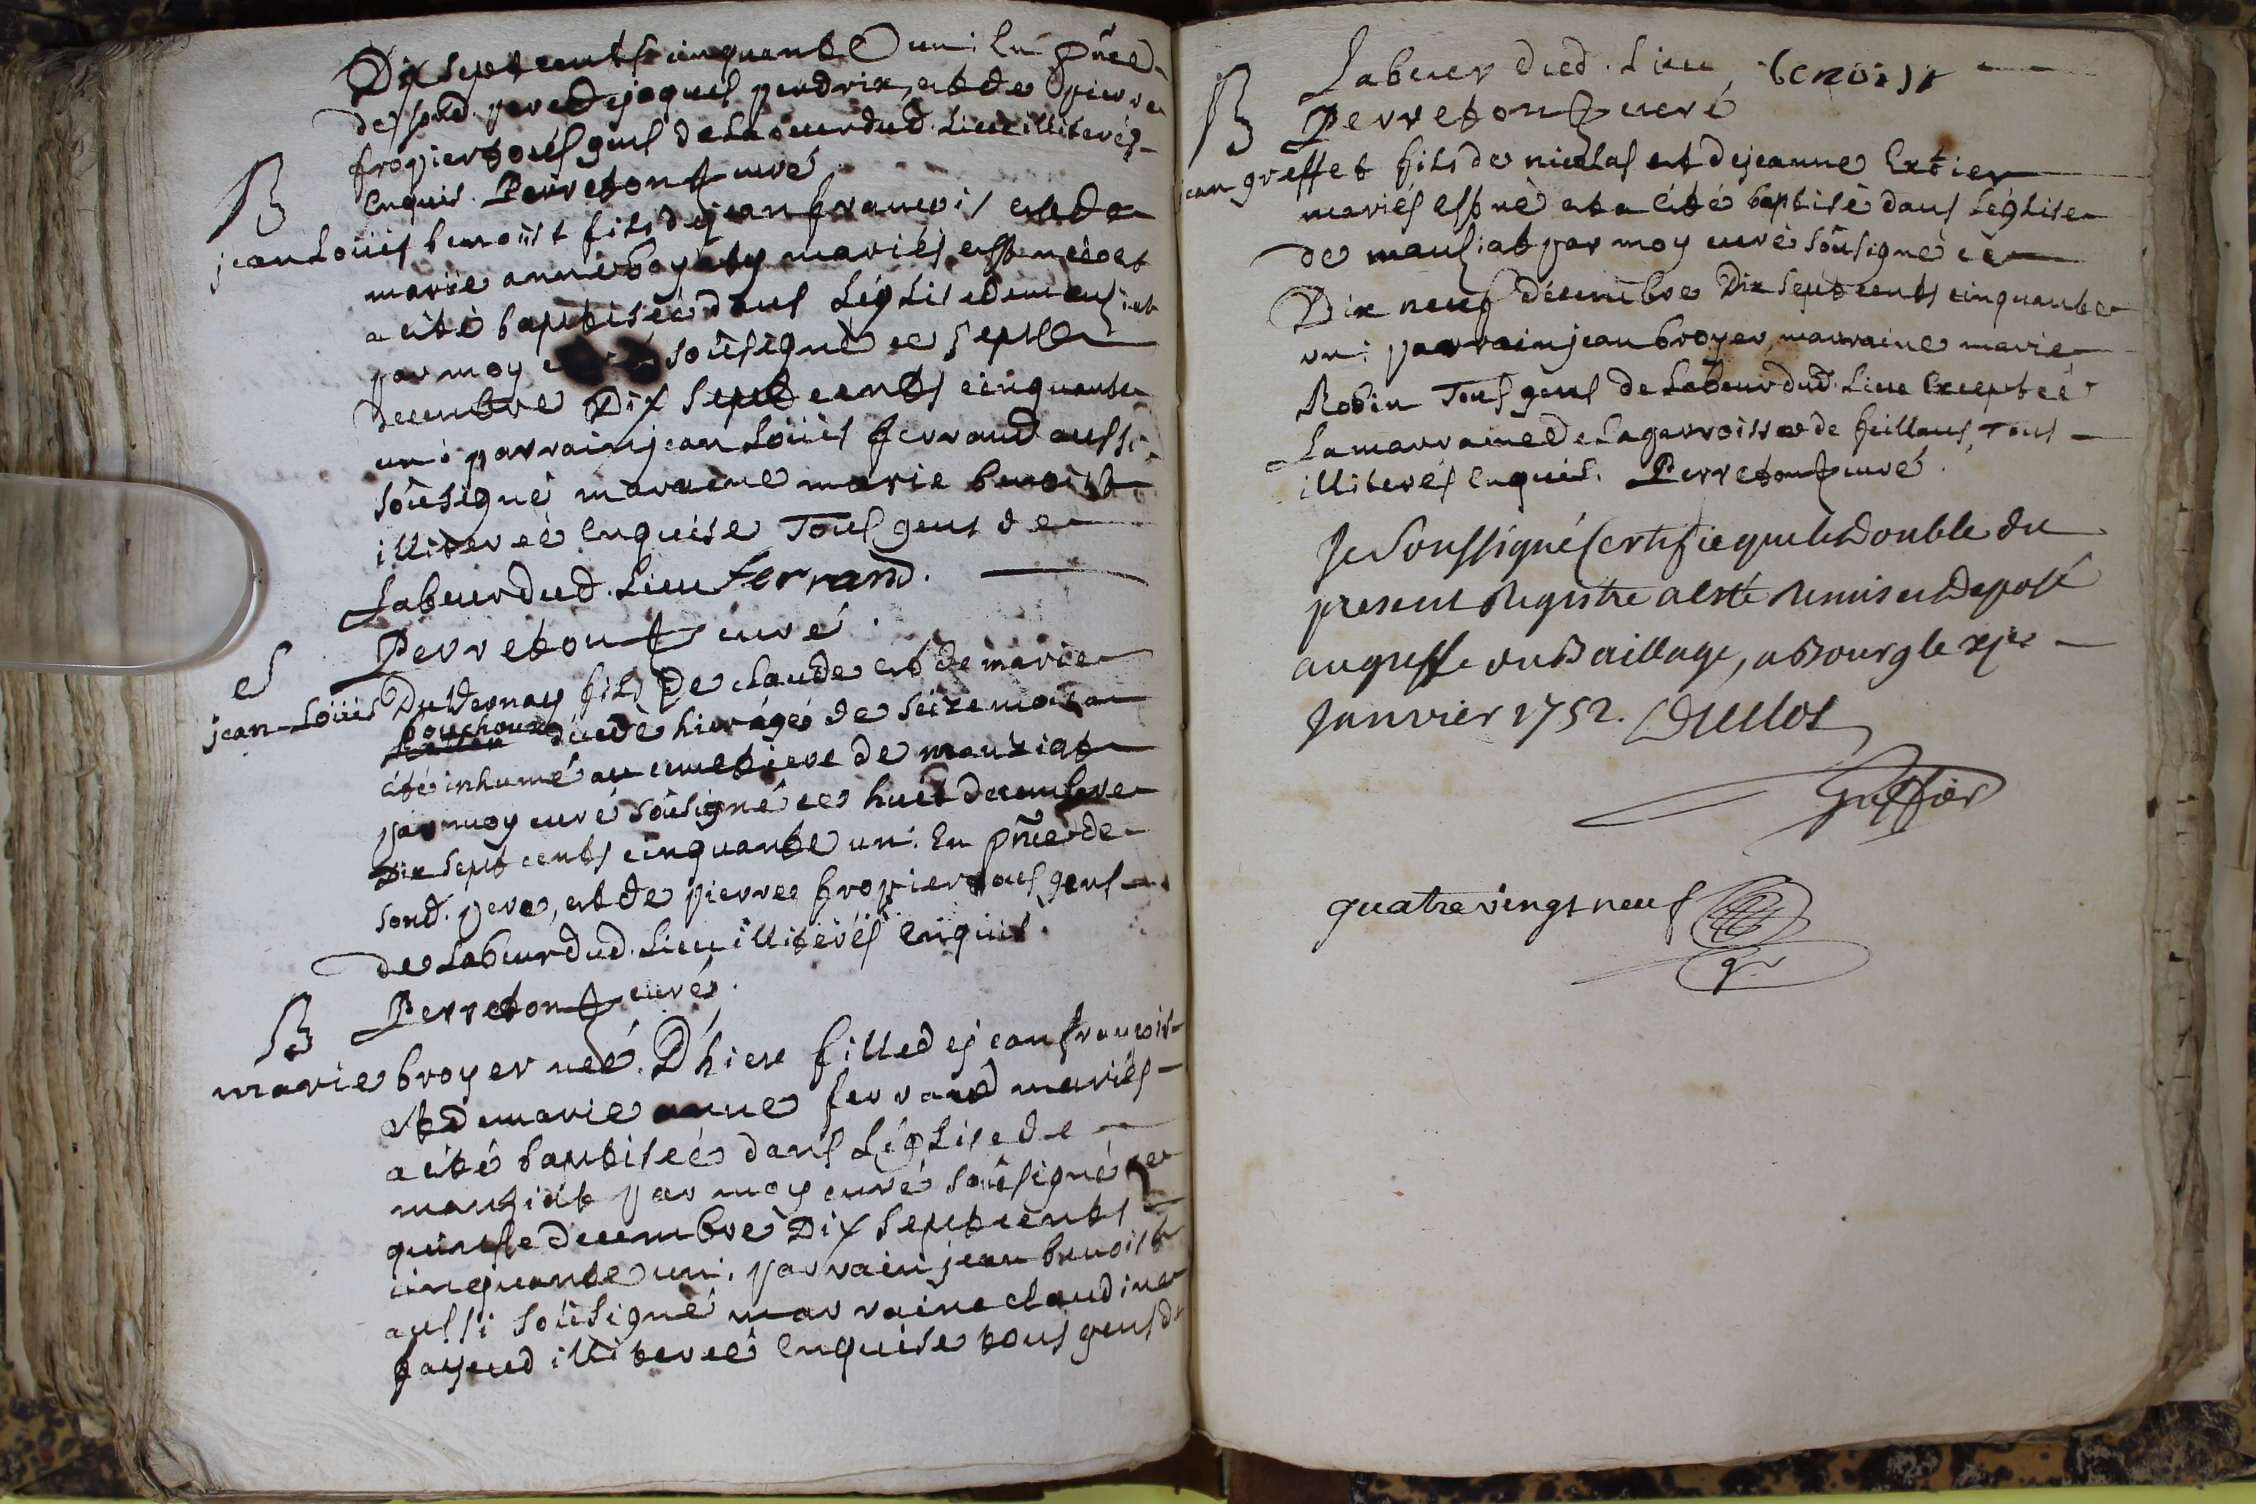 Dix sept cents cinquante un : En pñce
de sond. pere de jaques perdrix, et de pierre
fropier tous gens de Labeur dud. Lieu illiterés
Enquis. Perreton curé
B
jean Loüis benoist fils de jean francois et de
marie anne boyaty mariés est né et
a été baptisé dans L'église de mauziat
par moy soûsigné ce sept
decembre Dix sept cents cinquante
un : parrain jean Loüis ferrand aussi
soûsigné, maraine marie benoist
illiterée Enquise Tous gens de
Labeur dud. Lieu ferrand.
Perreton curé.
S
jean-Loüis DuVernay fils De claude et de marie
pouchoux décédé hier agé de seize mois a
été inhumé au cimetiere de mauziat
par moy curé soûsigné ce huit decembre
Dix sept cents cinquante un. En pñce de
sond. pere, et de pierre fropier tous gens
de Labeur dud. Lieu illiterés Enquis.
Perreton curé.
B
marie broyer neé. D'hier fille de jean francois
et de marie anne ferrand mariés
a été baptiseé dans L'église de
mauziat par moy curé soûsigné ce
quinsse decembre Dix sept cents
cinquante un. parrain jean benoist
aussi soûsigné marraine claudine
fayeud illitereé Enquise tous gens de
Labeur dud. Lieu, benoist
Perreton curé
B
jean greffet fils de nicolas et de jeanne Extier
mariés est né et a été baptisé dans L'église
de mauziat par moy curé soûsigné ce
Dix neuf décembre Dix sept cents cinquante
un : parrain jean broyer, marraine marie
Robin Tous gens de Labeur dud. Lieu Exceptée
La marraine de Lagervoisse de feillans, Tous
illiterés Enquis. Perreton curé.
Je Soussigné Certifie que le Double du
present Registre a esté Remis et Deposé
au greffe du Baillage, a Bourg le
Janvier 1752. Duclos
Greffier
quatre vingt neuf